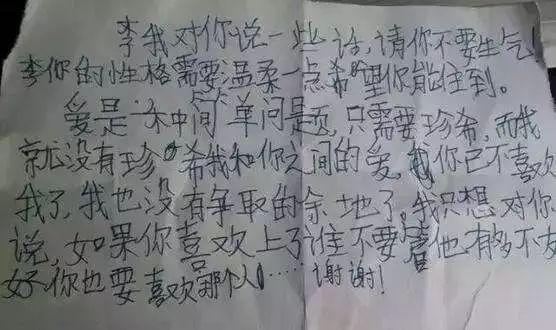 李我对你说一些话,请你不要生气!
李你的性格需要温柔一点希望你能住到。
爱是一种简单问题,只需要珍希,而我
就尤没有珍希我和你之间的爱,你已不喜欢
我了,我也没有争取的余地了,我只想对你
说,如果你喜欢上了谁不要管他有多不
好你也要喜欢那个人……谢谢!